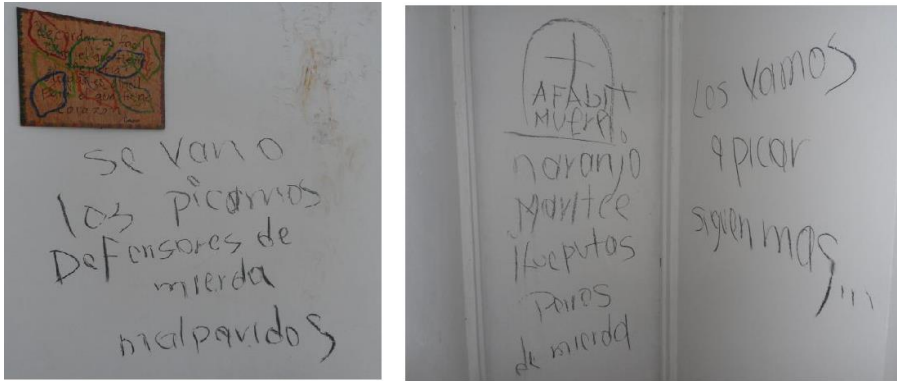 recordar es
corazon
se van o
los picamos
Defensores de
mierda
malparidos
AFABIT
MUERTO
naranjo
Maritce
Hueputos
Perros
de mierda
Los vamos
a picar
siguen mas...